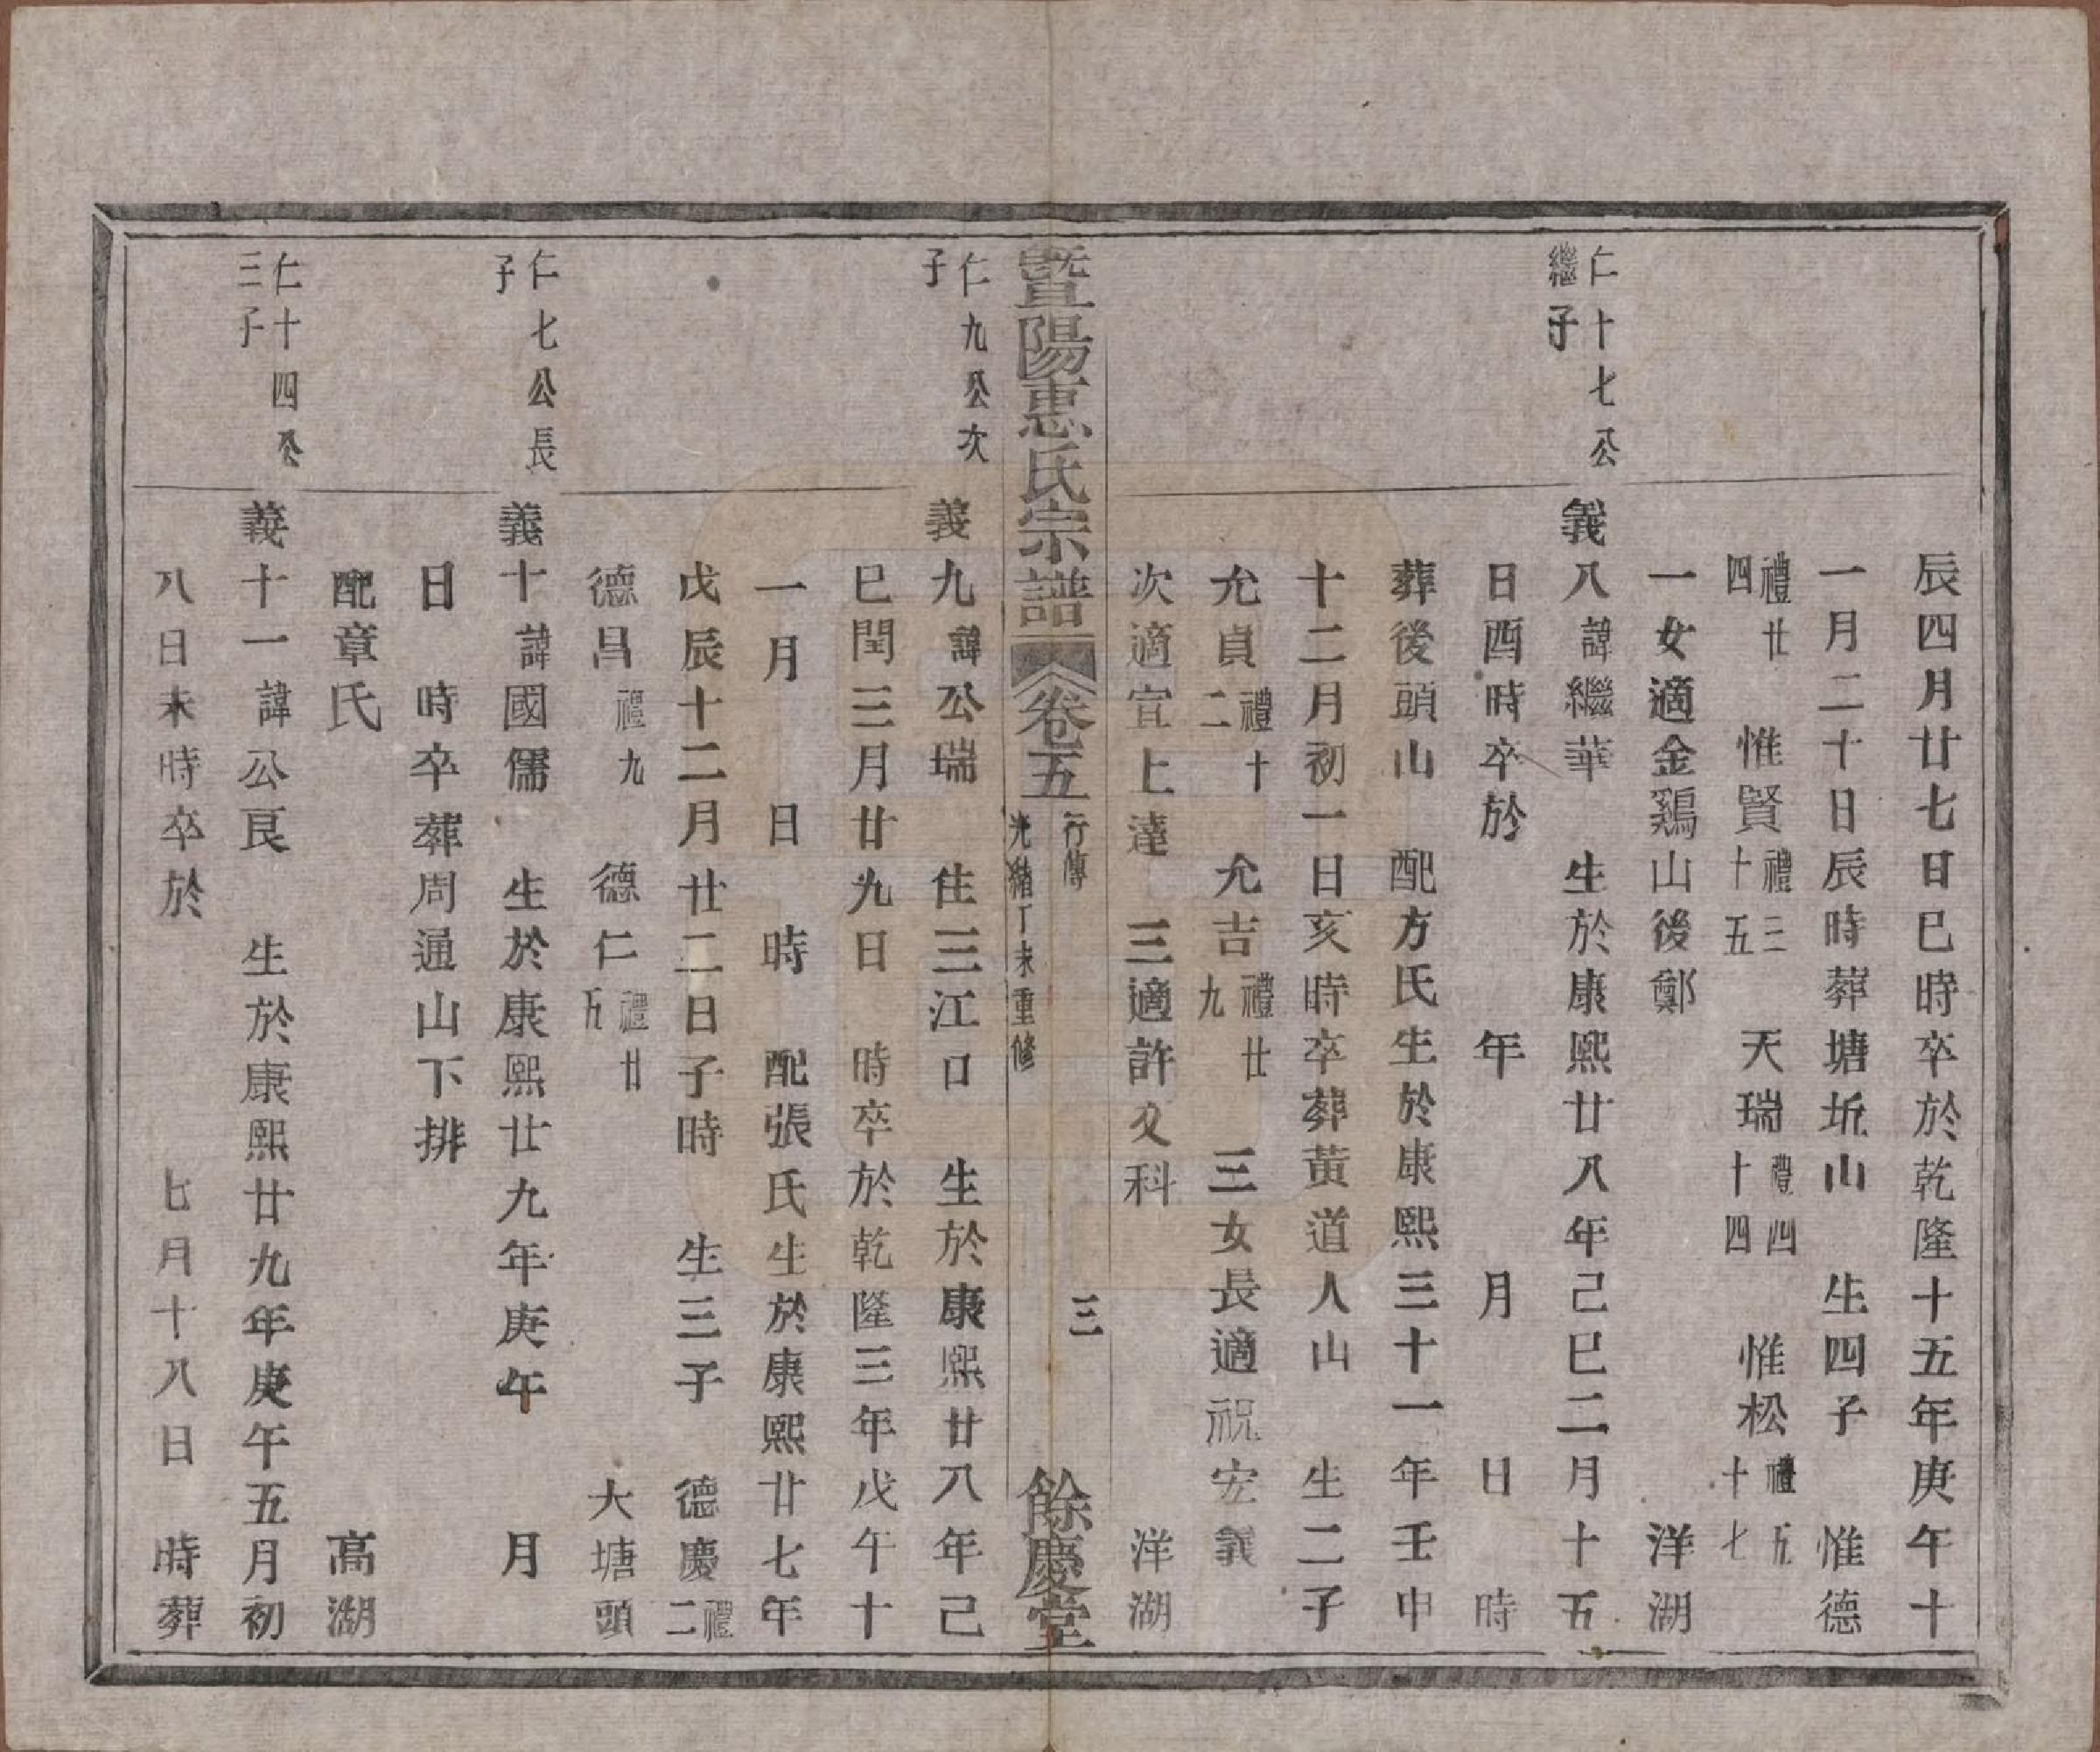 辰四月廿七日巳時卒於乾隆十五年庚午十
一月二十日辰時葬塘坵山 生四子 惟德
禮廿四 惟賢禮三十五 天瑞禮四十四 惟松禮五十七
一女適金鷄山後鄭 洋湖
仁十七公繼子
義八諱繼華 生於康熙廿八年己巳二月十五
日酉時卒於 年 月 日 時
葬後頭山 配方氏生於康熙三十一年壬申
十二月初一日亥時卒葬黃道人山 生二子
允貞禮十二 允吉禮廿九 三女長適祝宏義
次適宣上達 三適許文科 洋湖
暨陽惠氏宗譜 卷五 行傳 光緒丁未重修 三 餘慶堂
仁九公次子
義九諱公瑞 住三江口 生於康熙廿八年己
巳閏三月廿九日 時卒於乾隆三年戊午十
一月 日 時 配張氏生於康熙廿七年
戊辰十二月廿二日子時 生三子 德慶禮二
德昌禮九 德仁禮廿五 大塘頭
仁七公長子
義十諱國儒 生於康熙廿九年庚午 月
日 時卒葬周通山下排
配章氏 高湖
仁十四公三子
義十一諱公艮 生於康熙廿九年庚午五月初
八日未時卒於 七月十八日 時葬